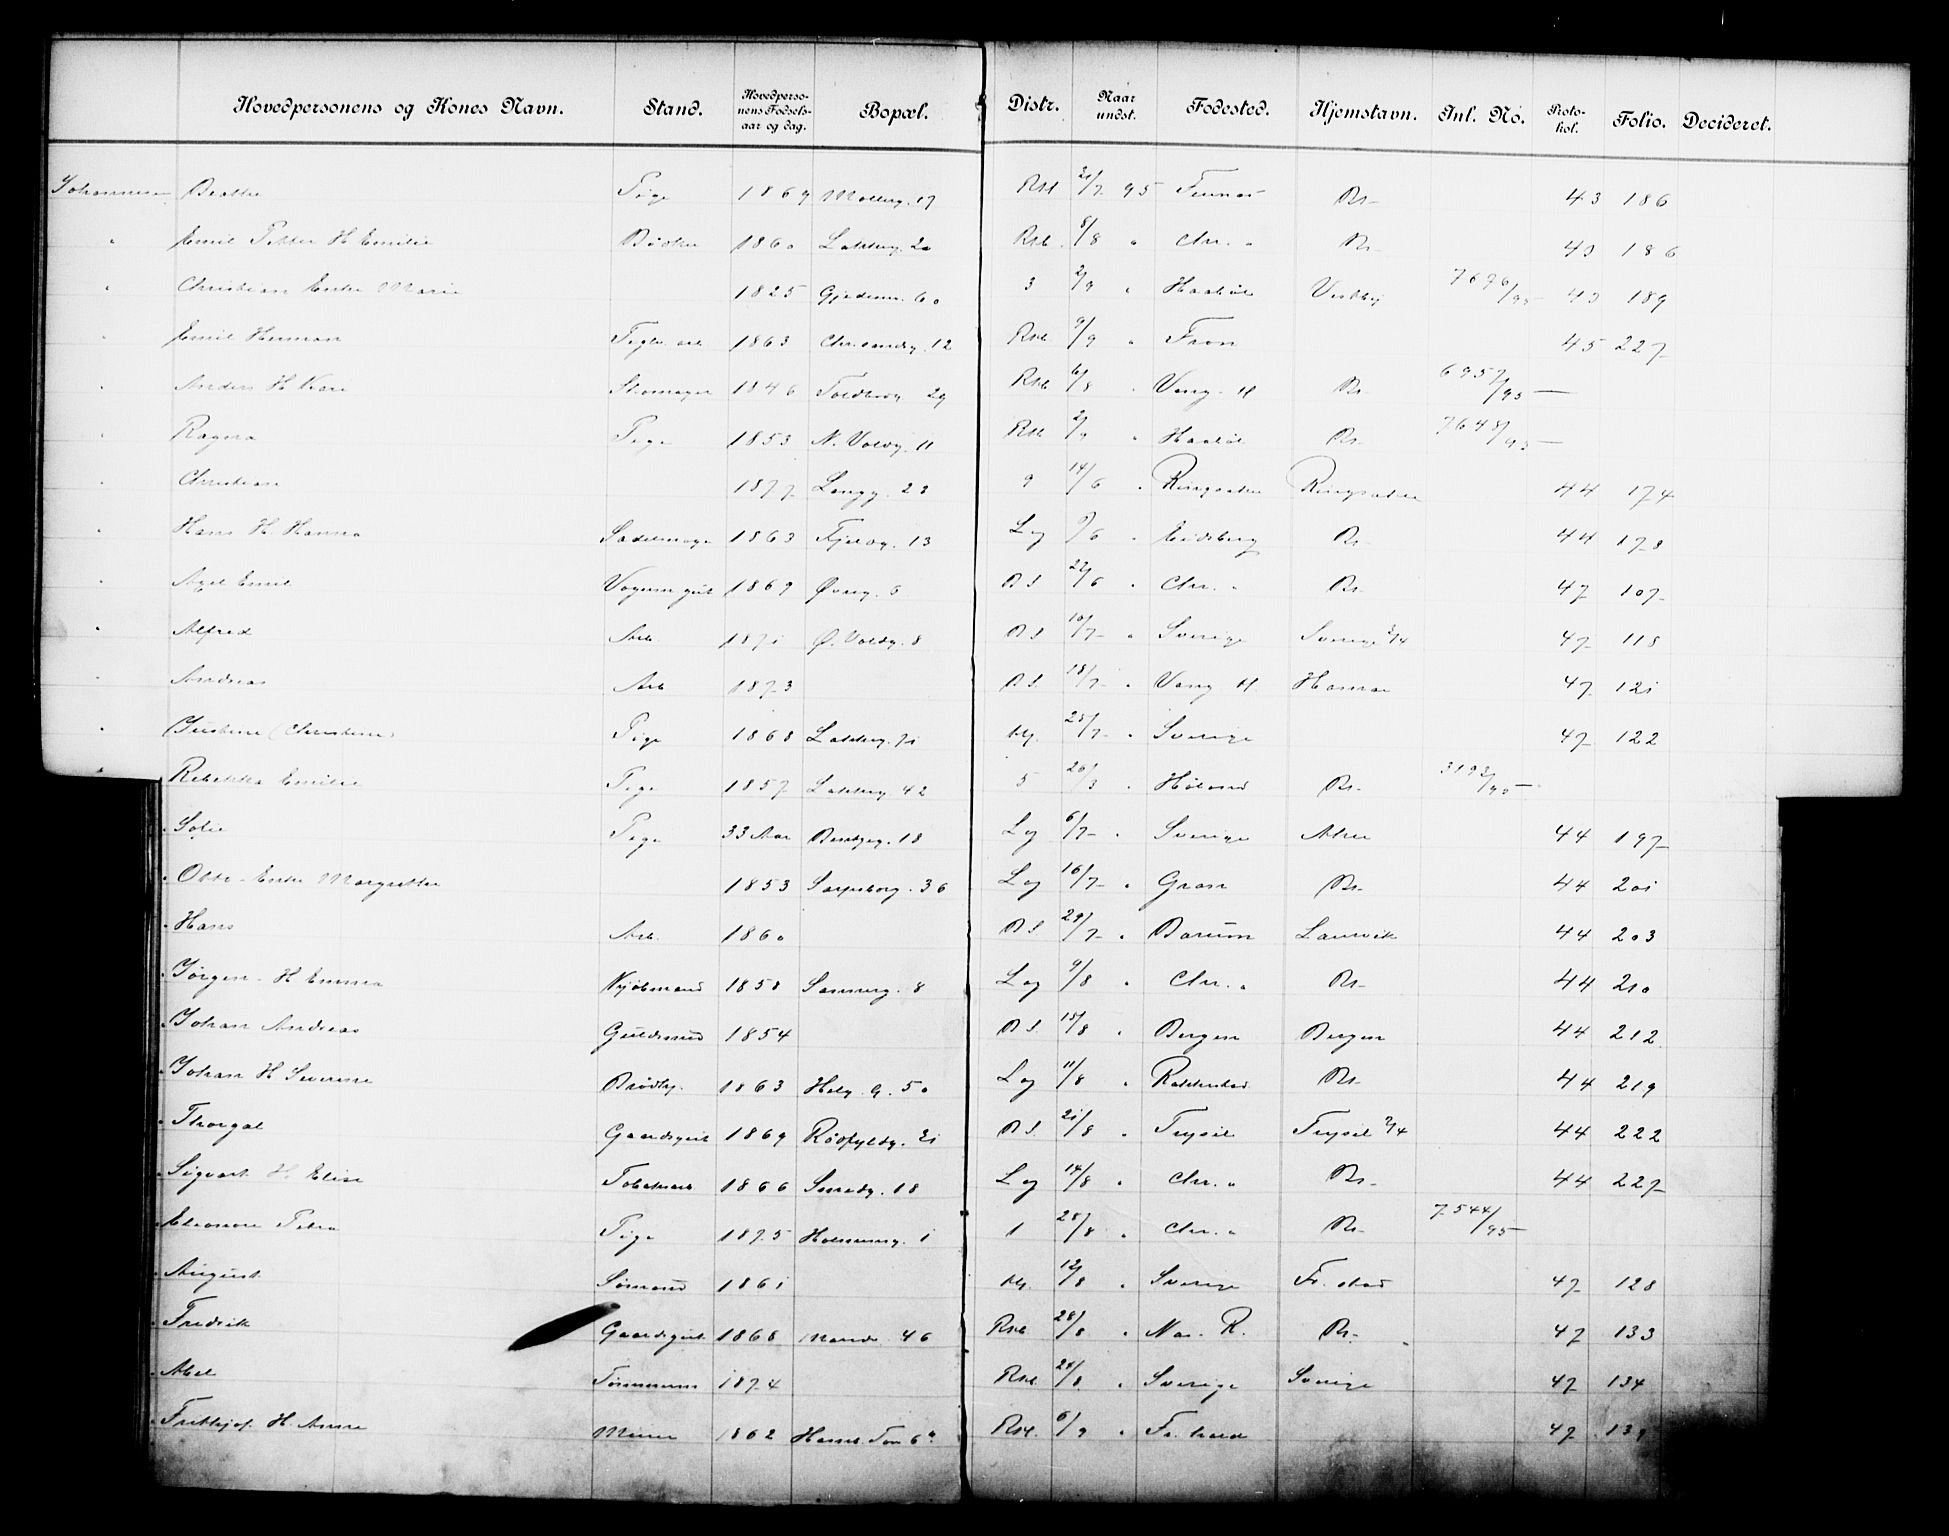 Hovedpersonens og Kones Navn. Stand. Hovedpersonens Fødselsaar og dag. Bopæl. Distr. Naar undst. Fødested. Hjemstavn. Inl. No. Protokol. Folio. Decideret.
Johannesen Beathe Pige 1869 Møllerg. 17 Rst 95 B- 43 186
" Emil Petter H Emilie Bødker 1860 Lakkeg. 20 Rst. 8/8 " Chr. " B- 43 186
" Christian Enke Marie 1825 60 3 2/9 " Haabøl Vestby 7676/95 — 43 189
" Emil Herman Teglv. arb 1863 Chr.sandg. 12 Rst. 9/9 " Fron 45 227
" Anders H Kari Skomager 1846 Toldbodg. 29 Rst 6/8 " Vang. H B- 6957/95 —
" Ragna Pige 1853 N. Voldg. 11 Rst. 2/9 " Haabøl B- 7648/95 —
" Christian 1877 Langg. 23 9 14/6 " Ringsaker Ringsaker 44 174
" Hans H. Hanna Sadelmager 1863 Fjeldg. 13 Lg " Eidsberg B- 44 173
" Axel Emil Vognmgut 1869 Øverg. 6 B S 22/6 " Chr. " B- 47 107
" Alfred Arb. 1871 Ø. Voldg. 8 B S 10/7 " Sverige Sverige 47 118
" Andreas Arb 1873 B S 18/7 " Vang H. Hamar 47 121
" Justine (Christine) Pige 1868 Lakkeg. 71 25/7 " Sverige 47 122
" Rebekka Emilie Pige 1857 Lakkeg. 42 5 26/3 " Høland B- 3193/95 —
" Sofie Pige 33 Aar 18 Lg 6/7 " Sverige Aker 44 197
" Otto - Enke Margrethe 1853 Sarpsborg. 36 Lg 16/7 " Gran B- 44 201
" Hans Arb. 1860 B S. 29/7 " Bærum Laurvik 44 203
" Jørgen - H Emma Kjøbmand 1858 8 Lg 9/8 " Chr. " B- 44 210
" Johan Andreas Guldsmed 1854 B S. 15/8 " Bergen Bergen 44 212
" Johan H Severine Brødhg. 1863 Helg. g. 50 Lg 11/8 " Rakkestad B- 44 219
" Thorgal Gaardsgut 1869 Rødfyldg. 21 B S. 21/8 " Trysil Trysil 44 222
" Sigvart H Elise Tobakarb 1866 Smedg. 18 Lg 14/8 " Chr. " B- 44 227
" Eleonore Petra Pige 1875 Holmensg. 1 1 28/8 " Chr. " B- 7544/95 —
" August Sømand 1861 12/8 " Sverige Fr. stad 47 128
" Fredrik Gaardsgut 1868 46 Rst 28/8 " Næs. R. B- 47 133
" Abel Tømmerm 1874 Rst. " Sverige Sverige 47 134
" Frithjof. H. Anna Murer 1862 Rst. 6/9 " 47 139